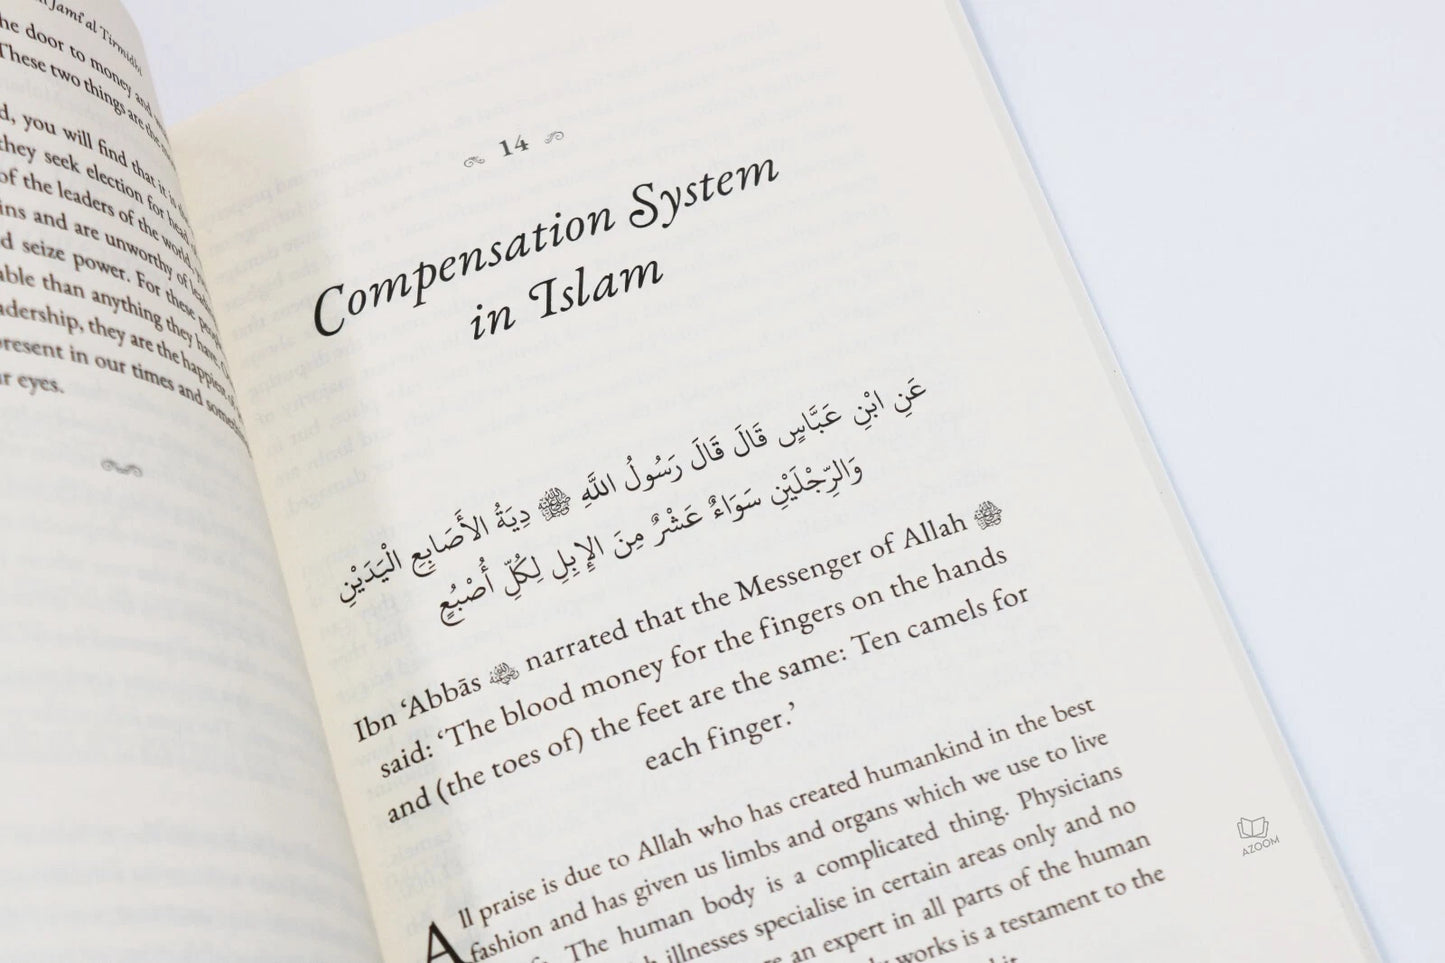 Jami' al Tirmidhi
the door to money and
These two things are the
d, you will find that it is
they seek election for head
of the leaders of the world,
ins and are unworthy of
d seize power. For these
able than anything they have.
adership, they are the happiest
present in our times and
r eyes.
14
Compensation System
in Islam
عَنِ ابْنِ عَبَّاسٍ قَالَ قَالَ رَسُولُ اللَّهِ ﷺ دِيَةُ الأَصَابِعِ الْيَدَيْنِ
وَالرِّجْلَيْنِ سَوَاءٌ عَشْرٌ مِنَ الإِبِلِ لِكُلِّ أُصْبُعٍ
Ibn ‘Abbās narrated that the Messenger of Allah ﷺ
said: ‘The blood money for the fingers on the hands
and (the toes of) the feet are the same: Ten camels for
each finger.’
All praise is due to Allah who has created humankind in the best
fashion and has given us limbs and organs which we use to live
The human body is a complicated thing. Physicians
illnesses specialise in certain areas only and no
an expert in all parts of the human
works is a testament to the
AZOOM